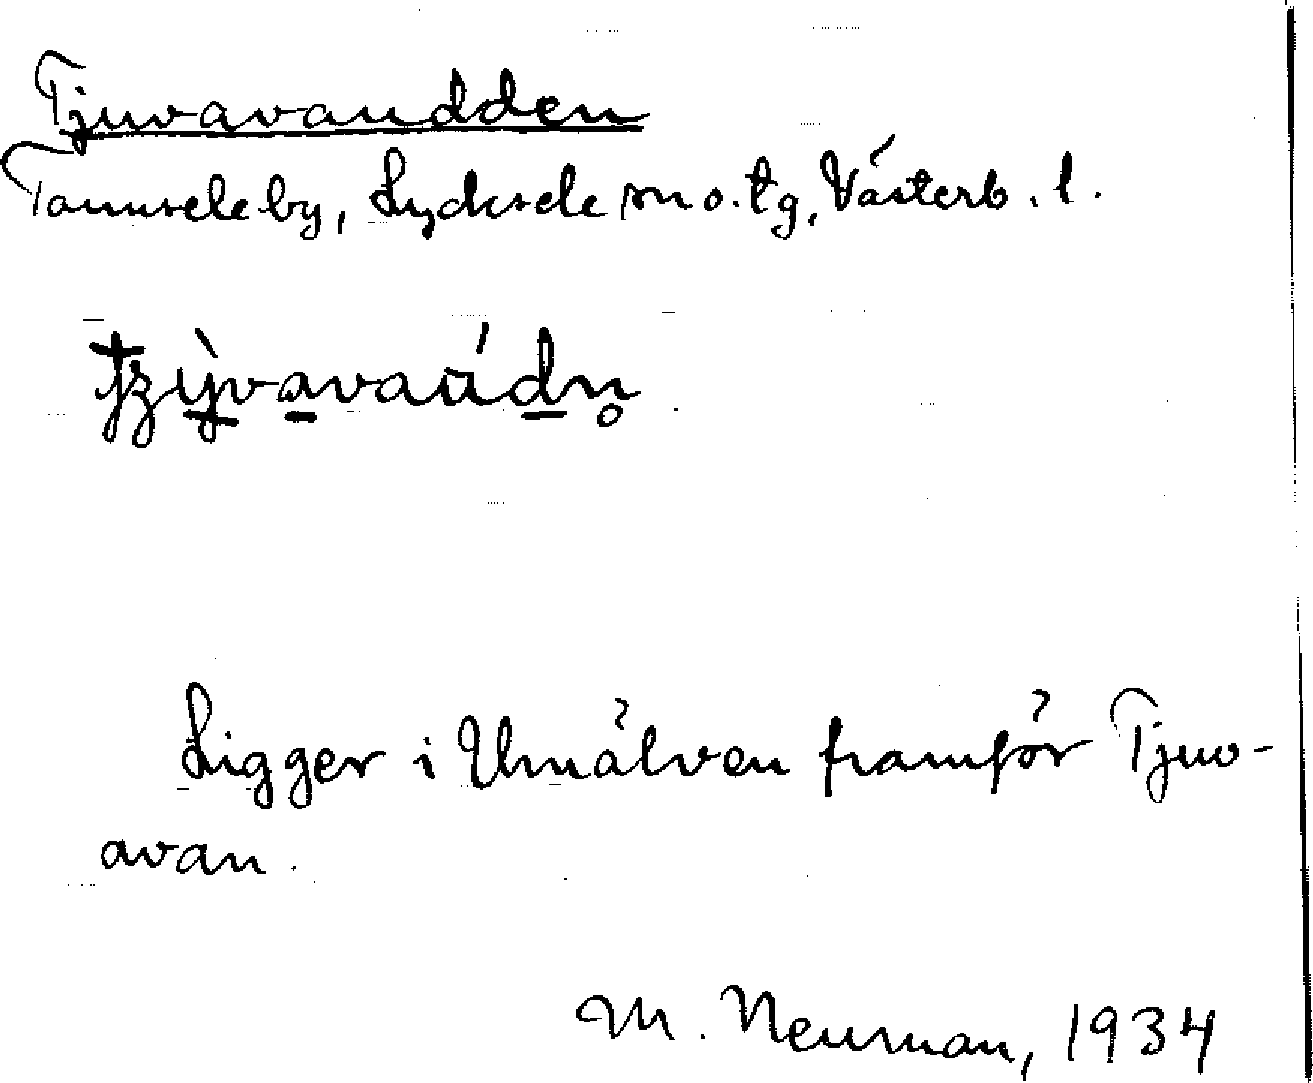 Tjuvavaudden
Tannsele by, Lycksele sn o. tg, Västerb. l.
Ligger i Umälven framför Tjuv-
avan.
M. Neuman, 1934